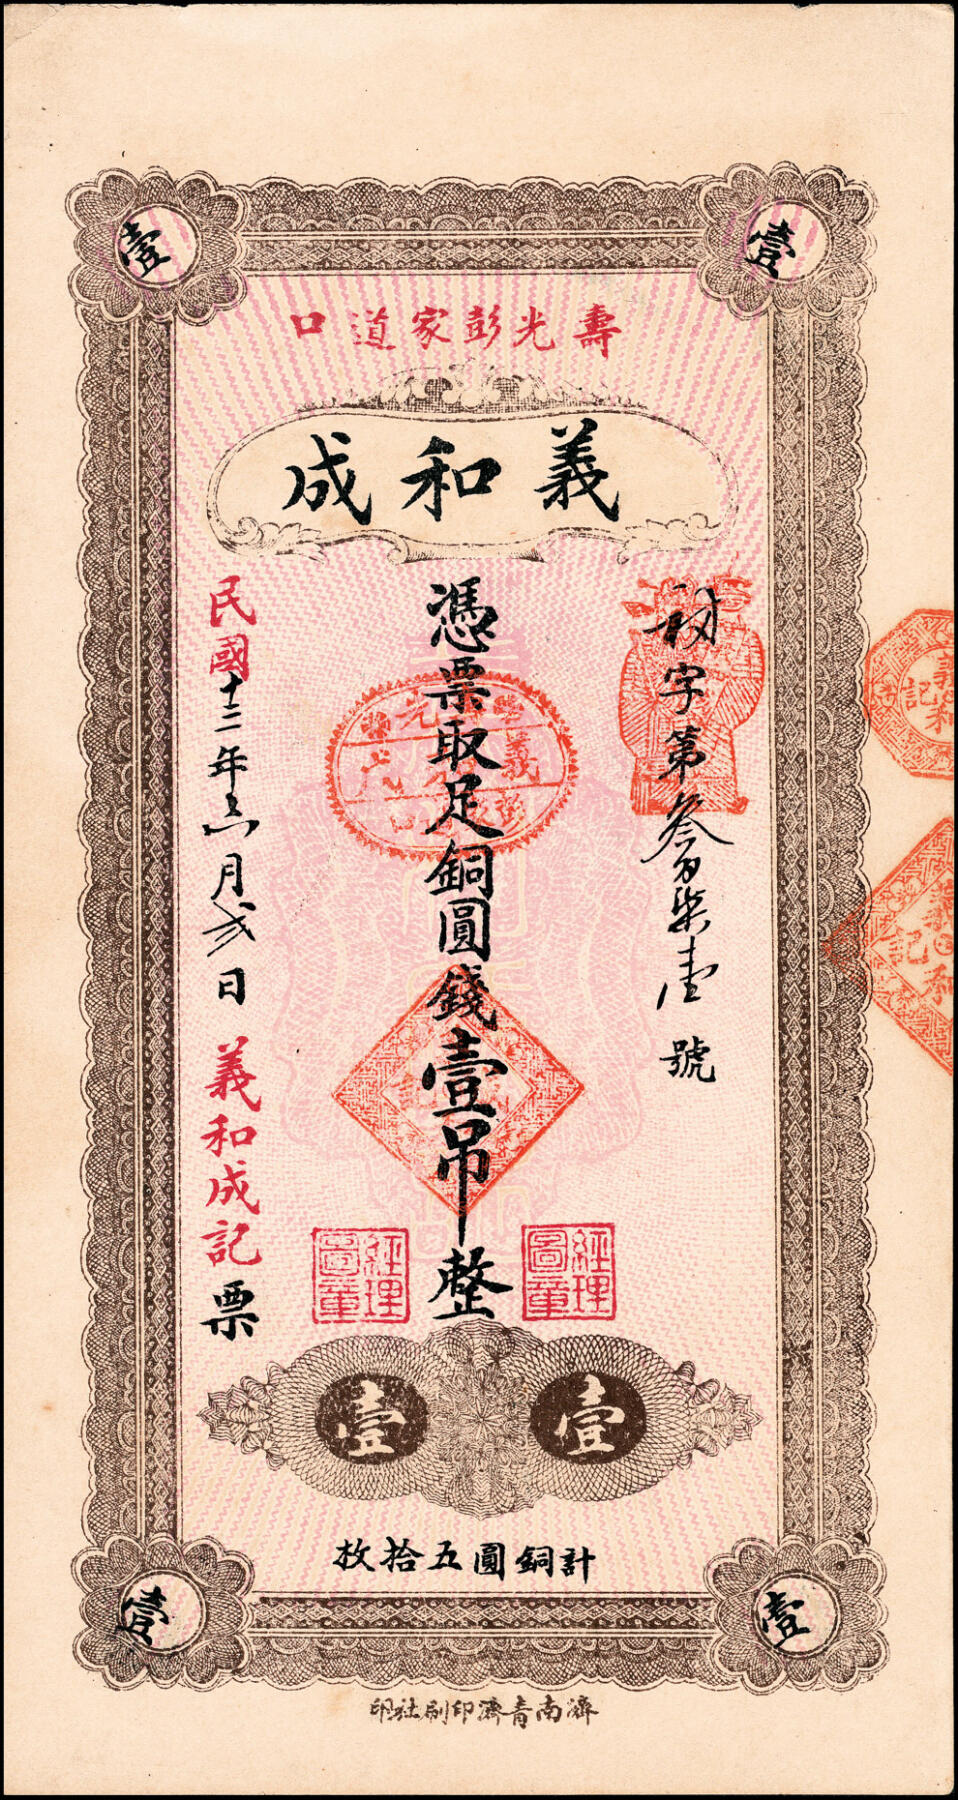 壹
壹
壽光彭家道口
義和成
字第叁百柒壹號
憑票取足銅圓錢壹吊整
民國十二年六月弍日
義和成記票
經理圖章
經理圖章
壹
壹
計銅圓五拾枚
壹
壹
濟南青濟印刷社印